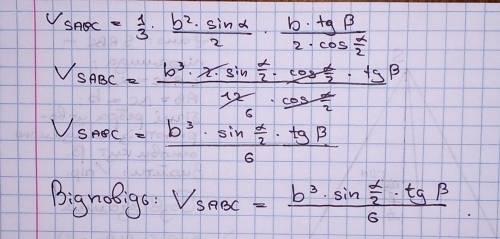 V_SABC = 1/3 · (b² · sin α)/2 · (b · tg β)/(2 · cos α/2)
V_SABC = (b³ · 2 · sin α/2 · cos α/2 · tg β)/(12 6 · cos α/2)
V_SABC = (b³ · sin α/2 · tg β)/6
Відповідь: V_SABC = (b³ · sin α/2 · tg β)/6 .